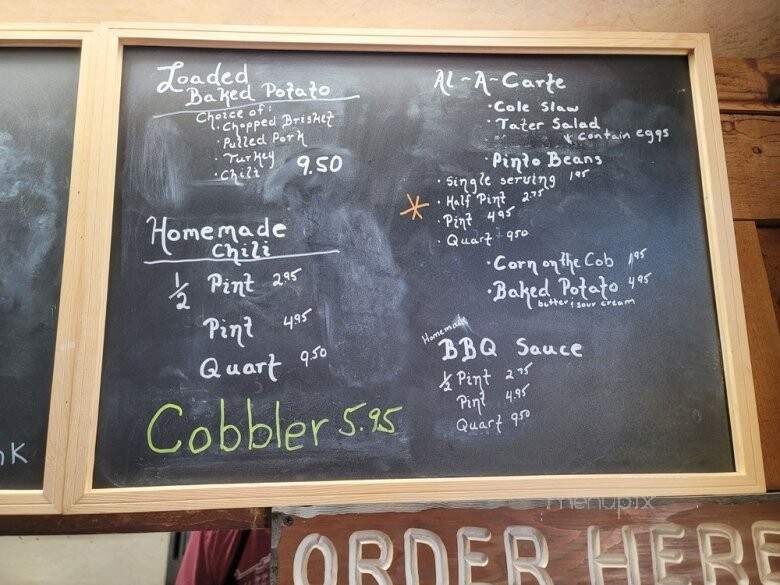 Loaded
Baked Potato
Choice of:
• Chopped Brisket
• Pulled Pork
• Turkey
• Chili
9.50
Homemade
Chili
1/2 Pint 2.95
Pint 4.95
Quart 9.50
Cobbler 5.95
Al-A-Carte
• Cole Slaw
• Tater Salad
contain eggs
• Pinto Beans
• Single serving 1.95
* • Half Pint 2.75
• Pint 4.95
• Quart 9.50
• Corn on the Cob 1.95
• Baked Potato 4.95
butter & sour cream
Homemade
BBQ Sauce
1/2 Pint 2.75
Pint 4.95
Quart 9.50
menupix
ORDER HERE